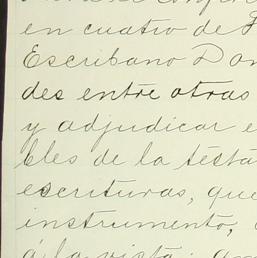 en cuatro de
Escribano Don
des entre otras
y adjudicar e
bles de la testa
escrituras, que
instrumento,
á la vista;